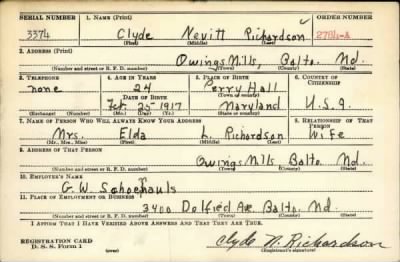 SERIAL NUMBER 1. NAME (Print) ORDER NUMBER
3374 Clyde Nevitt Richardson 2784-A
(First) (Middle) (Last)
2. ADDRESS (Print)
Owings Mills, Balto. Md.
(Number and street or R. F. D. number) (Town) (County) (State)
3. TELEPHONE 4. AGE IN YEARS 5. PLACE OF BIRTH 6. COUNTRY OF CITIZENSHIP
none 24 Perry Hall
DATE OF BIRTH (Town or county)
Feb. 25-1917 Maryland U.S.A.
(Exchange) (Number) (Mo.) (Day) (Yr.) (State or country)
7. NAME OF PERSON WHO WILL ALWAYS KNOW YOUR ADDRESS 8. RELATIONSHIP OF THAT PERSON
Mrs. Elda L. Richardson Wife
(Mr., Mrs., Miss) (First) (Middle) (Last)
9. ADDRESS OF THAT PERSON
Owings Mills Balto. Md.
(Number and street or R. F. D. number) (Town) (County) (State)
10. EMPLOYER'S NAME
G. W.
11. PLACE OF EMPLOYMENT OR BUSINESS
3400 Dolfield Ave. Balto. Md.
(Number and street or R. F. D. number) (Town) (County) (State)
I AFFIRM THAT I HAVE VERIFIED ABOVE ANSWERS AND THAT THEY ARE TRUE.
REGISTRATION CARD
D. S. S. Form 1 Clyde N. Richardson
(over) (Registrant's signature)